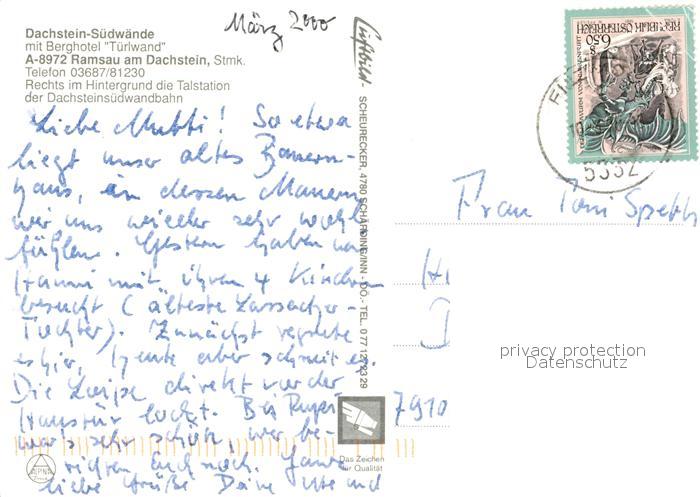 März 2000
Dachstein-Südwände
mit Berghotel "Türlwand"
A-8972 Ramsau am Dachstein, Stmk.
Telefon 03687/81230
Rechts im Hintergrund die Talstation
der Dachsteinsüdwandbahn
Liebe Mutti! So etwa
liegt unser altes Bauern-
haus, in dessen Mauern
wir uns wieder sehr wohl
fühlen. Gestern haben wir
Hanni mit ihren 4 Kindern
besucht (älteste
Tochter). Zunächst regnete
es hier, heute aber schneit es
Die Loipe direkt vor der
Haustür lockt. Bei
war's sehr schön, wir be-
richten Euch noch. Ganz
liebe Grüße Deine Ute und
Luftbild-
SCHEURECKER, 4780 SCHÄRDING/INN - OÖ. - TEL. 07712
REPUBLIK ÖSTERREICH
S 6.50
5332
Frau Toni Speth
H
privacy protection
Datenschutz
7910
Das Zeichen
für Qualität
ALPNA